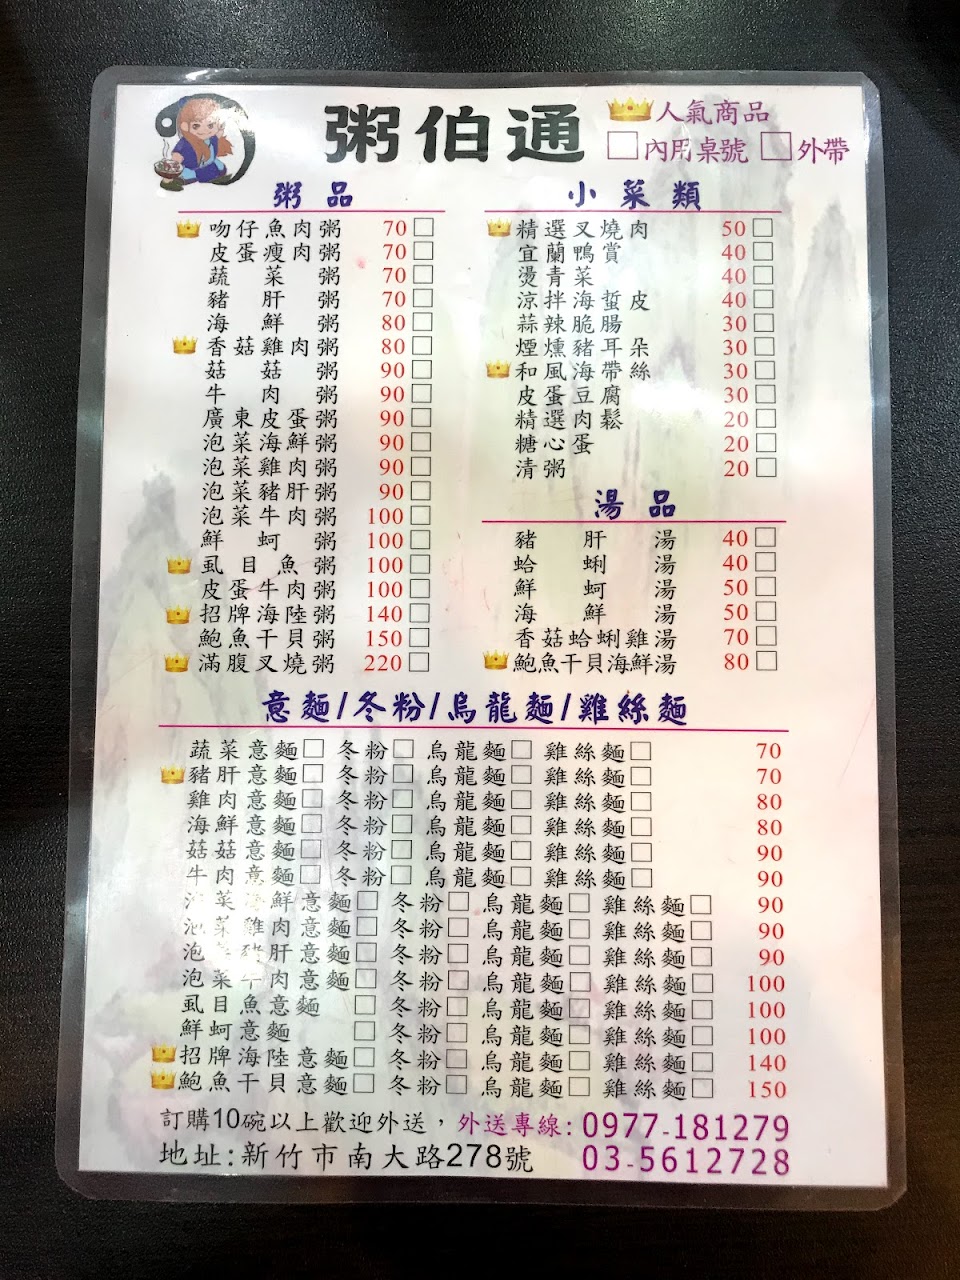 粥伯通
人氣商品
□內用桌號 □外帶
粥品
吻仔魚肉粥 70□
皮蛋瘦肉粥 70□
蔬菜粥 70□
豬肝粥 70□
海鮮粥 80□
香菇雞肉粥 80□
菇菇粥 90□
牛肉粥 90□
廣東皮蛋粥 90□
泡菜海鮮粥 90□
泡菜雞肉粥 90□
泡菜豬肝粥 90□
泡菜牛肉粥 100□
鮮蚵粥 100□
虱目魚粥 100□
皮蛋牛肉粥 100□
招牌海陸粥 140□
鮑魚干貝粥 150□
滿腹叉燒粥 220□
小菜類
精選叉燒肉 50□
宜蘭鴨賞 40□
燙青菜 40□
涼拌海蜇皮 40□
蒜辣脆腸 30□
煙燻豬耳朵 30□
和風海帶絲 30□
皮蛋豆腐 30□
精選肉鬆 20□
糖心蛋 20□
清粥 20□
湯品
豬肝湯 40□
蛤蜊湯 40□
鮮蚵湯 50□
海鮮湯 50□
香菇蛤蜊雞湯 70□
鮑魚干貝海鮮湯 80□
意麵/冬粉/烏龍麵/雞絲麵
蔬菜意麵□ 冬粉□ 烏龍麵□ 雞絲麵□ 70
豬肝意麵□ 冬粉□ 烏龍麵□ 雞絲麵□ 70
雞肉意麵□ 冬粉□ 烏龍麵□ 雞絲麵□ 80
海鮮意麵□ 冬粉□ 烏龍麵□ 雞絲麵□ 80
菇菇意麵□ 冬粉□ 烏龍麵□ 雞絲麵□ 90
牛肉意麵□ 冬粉□ 烏龍麵□ 雞絲麵□ 90
泡菜海鮮意麵□ 冬粉□ 烏龍麵□ 雞絲麵□ 90
泡菜雞肉意麵□ 冬粉□ 烏龍麵□ 雞絲麵□ 90
泡菜豬肝意麵□ 冬粉□ 烏龍麵□ 雞絲麵□ 90
泡菜牛肉意麵□ 冬粉□ 烏龍麵□ 雞絲麵□ 100
虱目魚意麵 □ 冬粉□ 烏龍麵□ 雞絲麵□ 100
鮮蚵意麵 □ 冬粉□ 烏龍麵□ 雞絲麵□ 100
招牌海陸意麵□ 冬粉□ 烏龍麵□ 雞絲麵□ 140
鮑魚干貝意麵□ 冬粉□ 烏龍麵□ 雞絲麵□ 150
訂購10碗以上歡迎外送，外送專線:0977-181279
地址:新竹市南大路278號 03-5612728